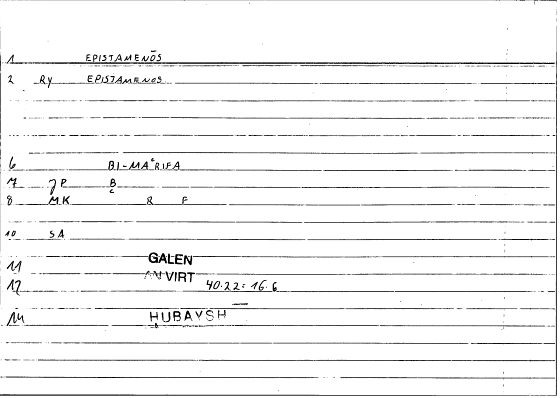 1 EPISTAMENŌS
2 RY EPISTAMENOS
6 BI-MAʿRIFA
7 JP B
8 MK C R F
10 SA
11 GALEN
12 AN VIRT 40.22: 16.6
14 ḤUBAYSH